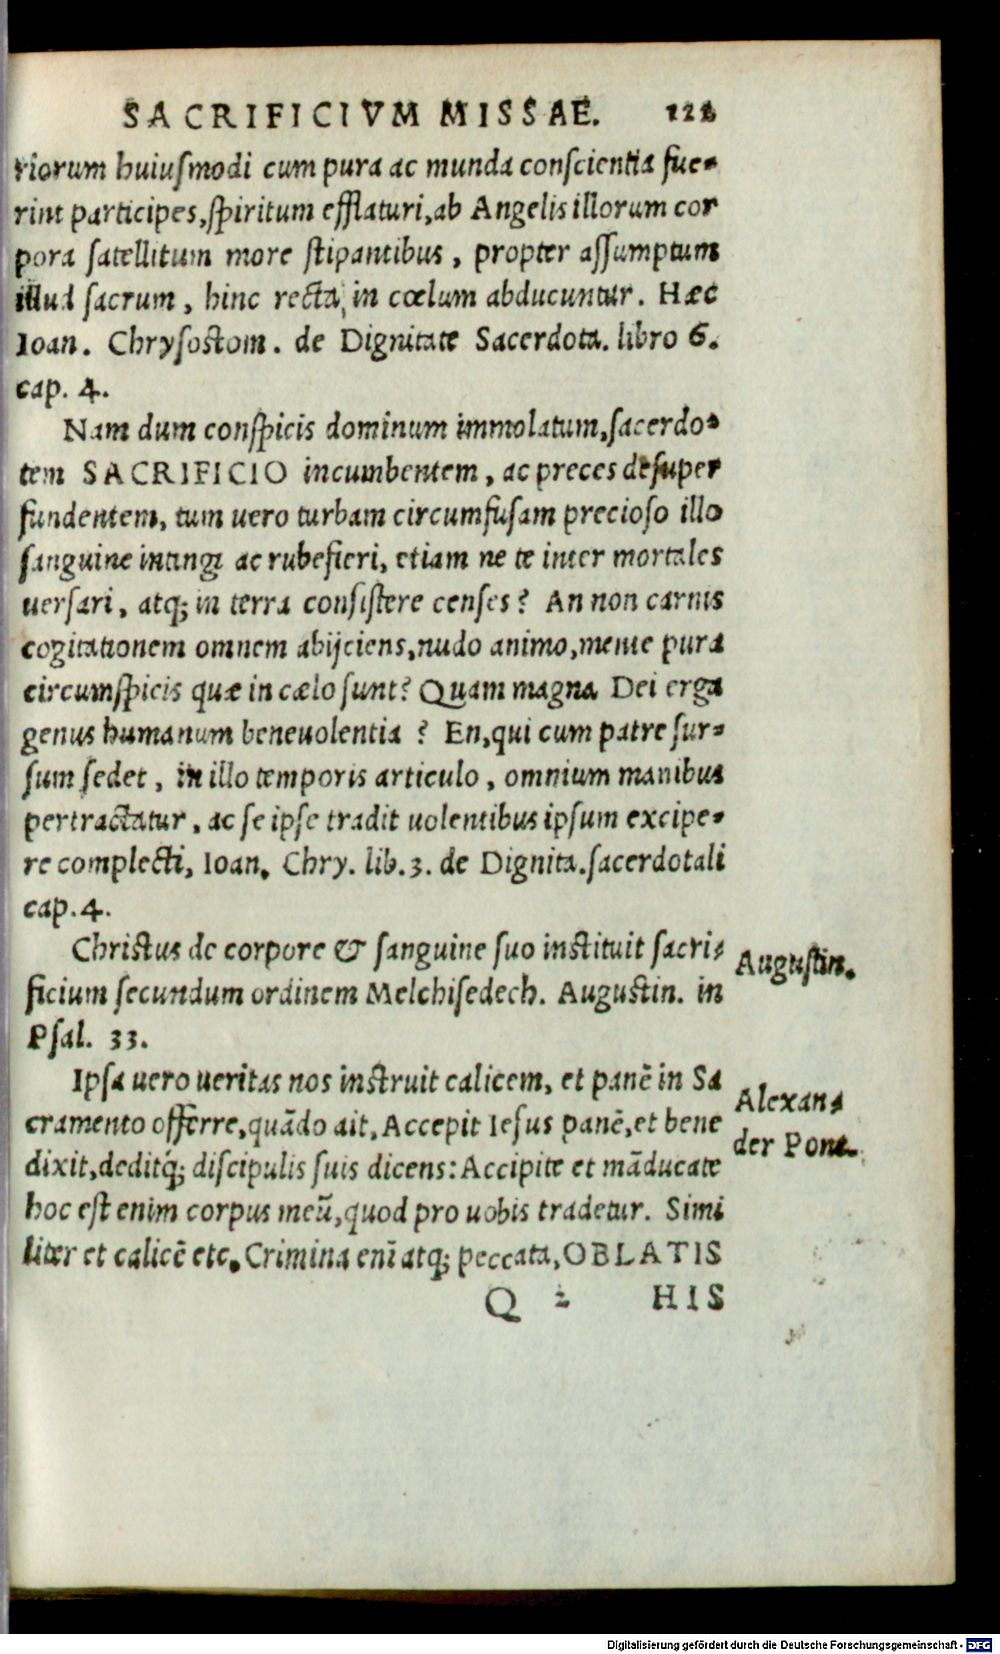 SACRIFICIVM MISSAE. 122
riorum huiusmodi cum pura ac munda conscientia fue-
rint participes, spiritum efflaturi, ab Angelis illorum cor
pora satellitum more stipantibus, propter assumptum
illud sacrum, hinc recta in cœlum abducuntur. Hæc
Ioan. Chrysostom. de Dignitate Sacerdota. libro 6.
cap. 4.
Nam dum conspicis dominum immolatum, sacerdo-
tem SACRIFICIO incumbentem, ac preces desuper
fundentem, tum uero turbam circumfusam precioso illo
sanguine intingi ac rubefieri, etiam ne te inter mortales
uersari, atq; in terra consistere censes? An non carnis
cogitationem omnem abijciens, nudo animo, mente pura
circumspicis quæ in cælo sunt? Quam magna Dei erga
genus humanum beneuolentia? En, qui cum patre sur-
sum sedet, in illo temporis articulo, omnium manibus
pertractatur, ac se ipse tradit uolentibus ipsum excipe-
re complecti, Ioan. Chry. lib. 3. de Dignita. sacerdotali
cap. 4.
Christus de corpore & sanguine suo instituit sacri-
ficium secundum ordinem Melchisedech. Augustin. in
Psal. 33.
Augustin.
Ipsa uero ueritas nos instruit calicem, et panẽ in Sa
cramento offerre, quãdo ait, Accepit Iesus panẽ, et bene
dixit, deditq́; discipulis suis dicens: Accipite et mãducate
hoc est enim corpus meũ, quod pro uobis tradetur. Simi
liter et calicẽ etc. Crimina enĩ atq; peccata, OBLATIS
Alexan-
der Pont.
Q 2 HIS
Digitalisierung gefördert durch die Deutsche Forschungsgemeinschaft - DFG